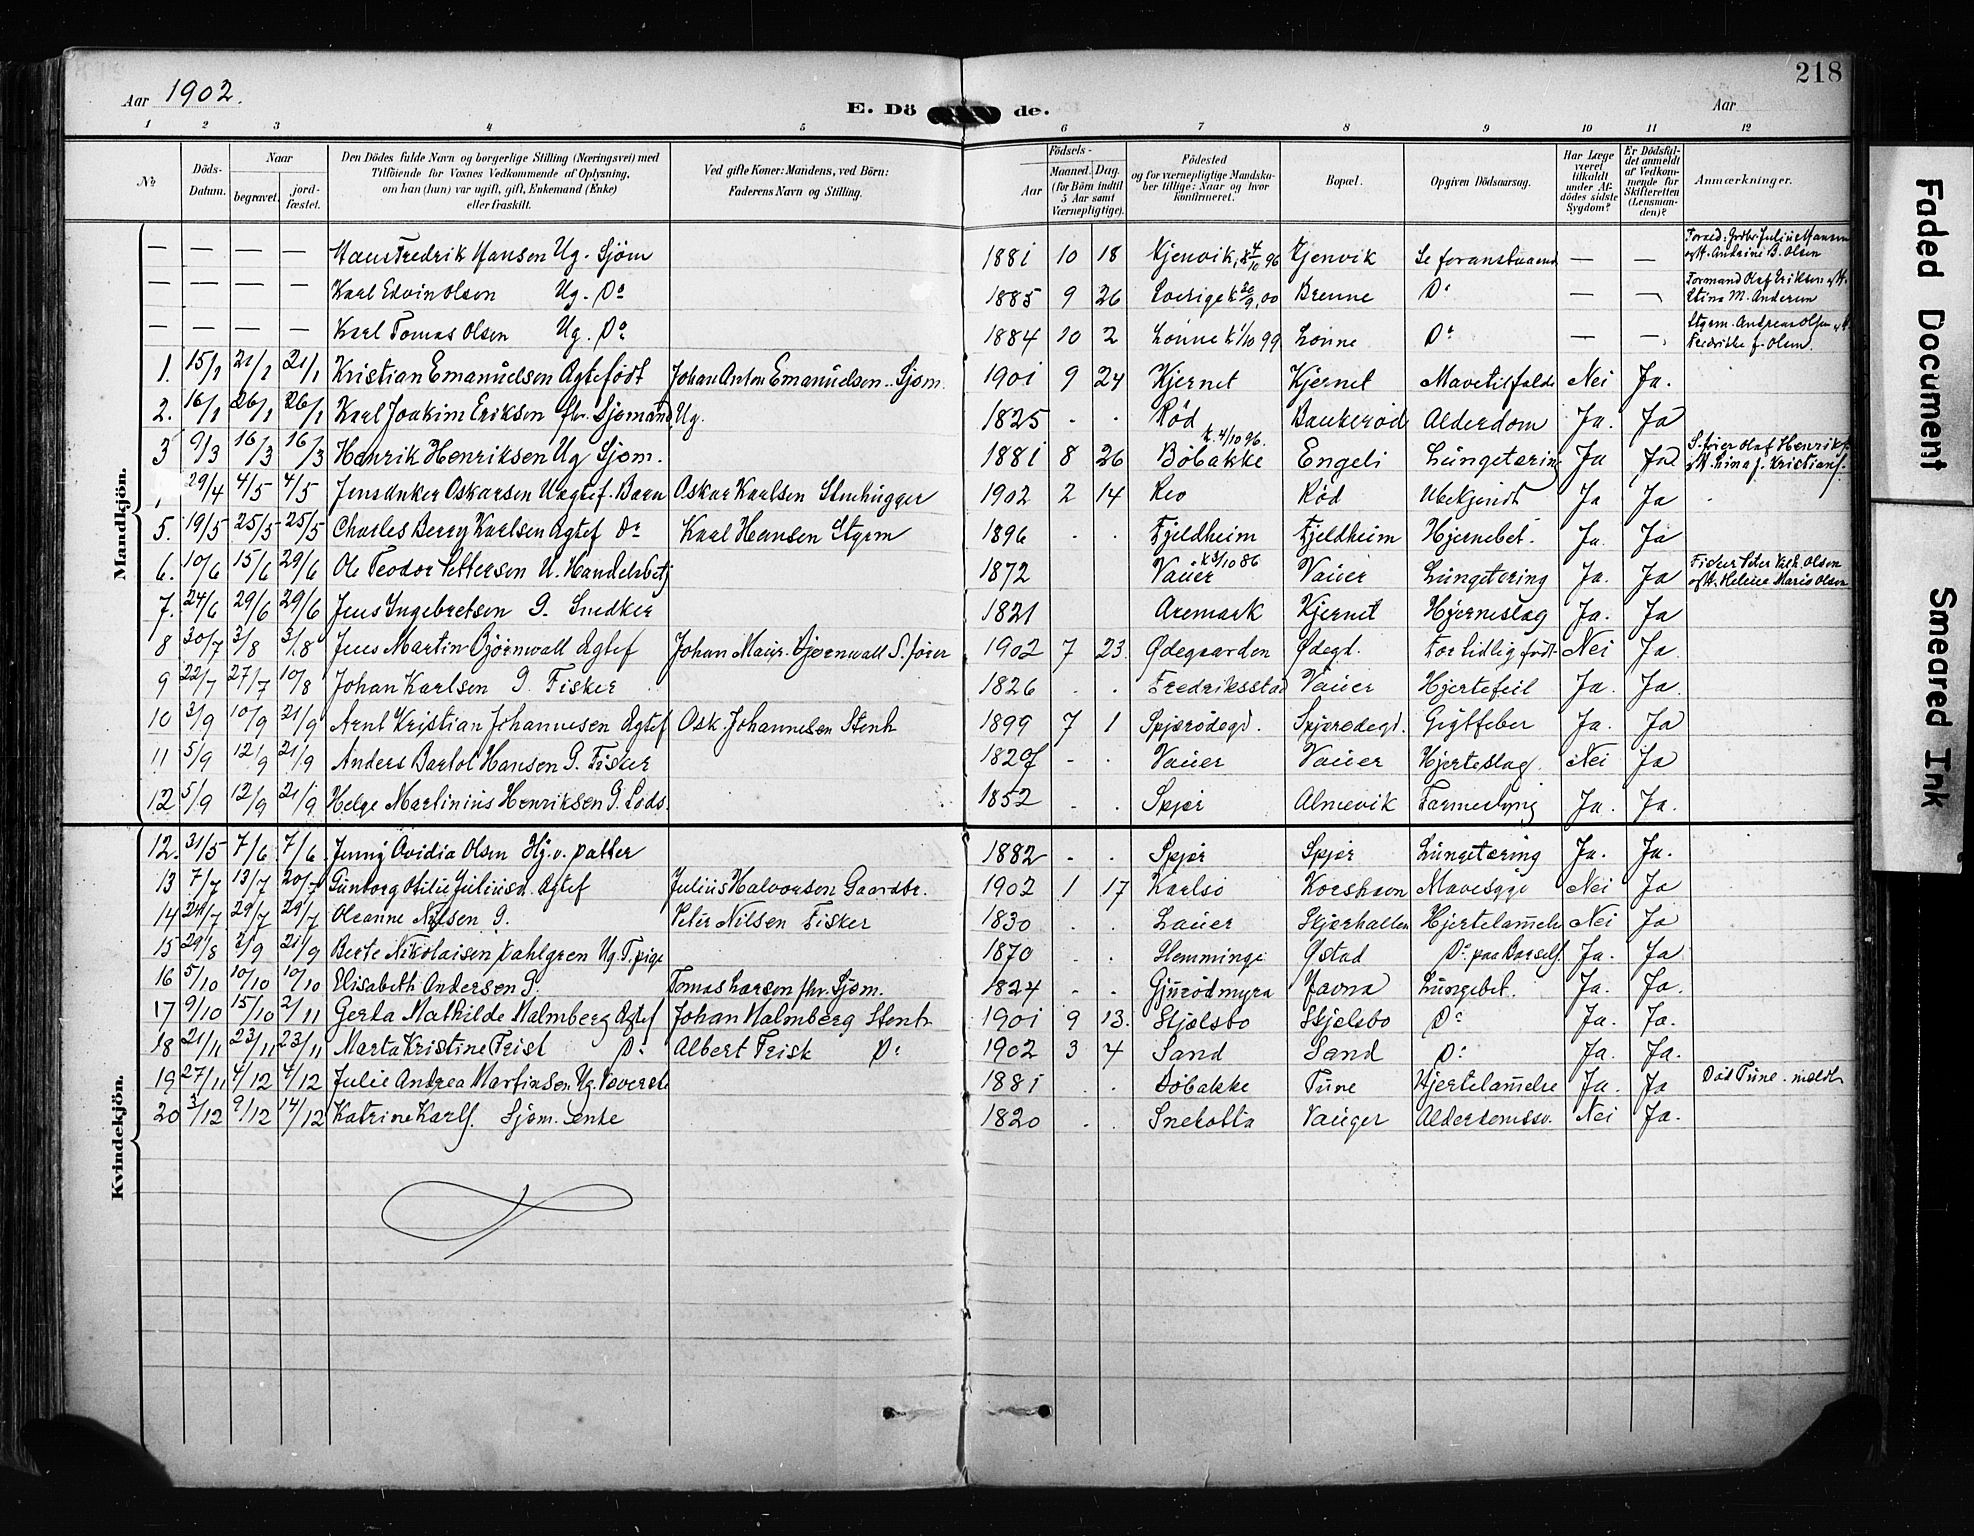 218
Aar 1902.
E. Döde.
Aar
1 2 3 4 5 6 7 8 9 10 11 12
No
Döds-Datum.
Naar
begravet.
jord-fæstet.
Den Dödes fulde Navn og borgerlige Stilling (Næringsvei) med
Tilföiende for Voxnes Vedkommende af Oplysning,
om han (hun) var ugift, gift, Enkemand (Enke)
eller fraskilt.
Ved gifte Koner: Mandens, ved Börn:
Faderens Navn og Stilling.
Födsels-
Aar
Maaned. Dag.
(for Börn indtil
5 Aar samt
Værnepligtige).
Födested
og for værnepligtige Mandska-
ber tillige: Naar og hvor
konfirmeret.
Bopæl.
Opgiven Dödsaarsag.
Har Læge
været
tilkaldt
under Af-
dödes sidste
Sygdom?
Er Dödsfal-
det anmeldt
af Vedkom-
mende for
Skifteretten
(Lensman-
den)?
Anmærkninger.
Mandkjön.
— — — — Hans Fredrik Hansen Ug. Sjöm 1881 10 18 Kjenvik, 4/10 96 Kjenvik Se foranstaaend — — Julius Hansen Andrine B. Olsen
— — — — Karl Edvin Olsen Ug. Do 1885 9 26 Sverige k 30/9 00 Brenne Do — — Formand Olaf Eriksen Stina M. Andersen
— — — — Karl Tomas Olsen Ug. Do 1884 10 2 Lönne k 1/10 99 Lönne Do — — Styrm. Andreas Olsen Fredrikke J. Olsen
1. 15/1 21/1 21/1 Kristian Emanuelsen Ægtefödt Johan Anton Emanuelsen Sjöm. 1901 9 24 Kjernet Kjernet Mavetilfælde Nei Ja.
2. 16/1 26/1 26/1 Karl Joakim Eriksen fhv. Sjömand Ug. 1825 . . Röd Bankeröd Alderdom Ja. Ja
3 9/3 16/3 16/3 Henrik Henriksen Ug Sjöm. 1881 8 26 Böbakke k. 4/10 96. Engeli Lungetæring Ja Ja Olaf Henriks
29/4 4/5 4/5 Oskarsen Uægtef. Barn Oskar Karlsen Stenhugger 1902 2 14 Rev Röd Ubekjendt Ja Ja
5. 19/5 25/5 25/5 Charles Berry Karlsen Ægtef Do Karl Hansen Styrm 1896 . . Fjeldheim Fjeldheim Hjernebet. Ja. Ja
6. 10/6 15/6 29/6 Ole Teodor Pettersen U. Handelsbetj 1872 Vauer k 3/10 86 Vauer Lungetæring Ja. Ja Fisker Peter Olsen Helene Marie Olsen
7. 24/6 29/6 29/6 Jens Ingebretsen G. Snedker 1821 Aremark Kjernet Hjerneslag Ja. Ja
8 30/7 3/8 3/8 Jens Martin Björnwall Ægtef Johan Maur. Björnwall S. förer 1902 7 23. Ödegaarden Ödegd. For tidlig födt Nei Ja.
9 22/7 27/7 10/8 Johan Karlsen G. Fisker 1826 . . Fredriksstad Vauer Hjertefeil Ja. Ja.
10 3/9 10/9 21/9 Arnt Kristian Johannesen Ægtef Osk. Johannesen Stenh 1899 7 1 Spjærödegd. Spjærödegd. Gigtfeber Ja. Ja
11 5/9 12/9 21/9 Anders Bartol Hansen G. Fisker 1829 - . Vauer Vauer Hjerteslag. Nei Ja
12 5/9 12/9 21/9 Helge Martinius Henriksen G. Lods. 1852 . . Spjær Almevik Tarmeslyng Ja. Ja.
Kvindekjön.
12. 31/5 7/6 7/6 Jenny Ovidia Olsen Hj. v. datter 1882 - . Spjær Spjær Lungetæring Ja. Ja.
13 7/7 13/7 20/7 Gunborg Otilie Juliusd. Ægtef Julius Halvorsen Gaardbr. 1902 1 17 Karlsö Korshavn Mavesyge Nei Ja
14 24/7 29/7 29/7 Oleanne Nilsen G. Peter Nilsen Fisker 1830 . . Lauer Skjærhallen Hjertelamelse Nei Ja
15 29/8 2/9 21/9 Berte Nikolaisen Dahlgren Ug. T. pige 1870 . . Hemminge Östad Do. paa Barself. Ja. Ja
16 5/10 10/10 10/10 Elisabeth Andersen G. Tomas Larsen fhv. Sjöm. 1824 - . Gjurödmyra Havna Lungebet. Ja. Ja.
17 9/10 15/10 2/11 Gerda Mathilde Malmberg Ægtef Johan Malmberg Stenh 1901 9 13. Stjelsbo Skjelsbo Do Ja. Ja.
18 21/11 23/11 23/11 Marta Kristine Frisk Do Albert Frisk Do 1902 3 4 Sand Sand Do Ja. Ja.
19 27/11 4/12 4/12 Julie Andrea Martinsen Ug. Væverske 1881 . . Böbakke Tune Hjertelamelse Ja. Ja Död Tune. meldt
20 3/12 9/12 14/12 Katrine Karls. Sjöm. enke 1820 . . Snekotta Vauger Alderdomssv. Nei Ja.
Faded Document
Smeared Ink